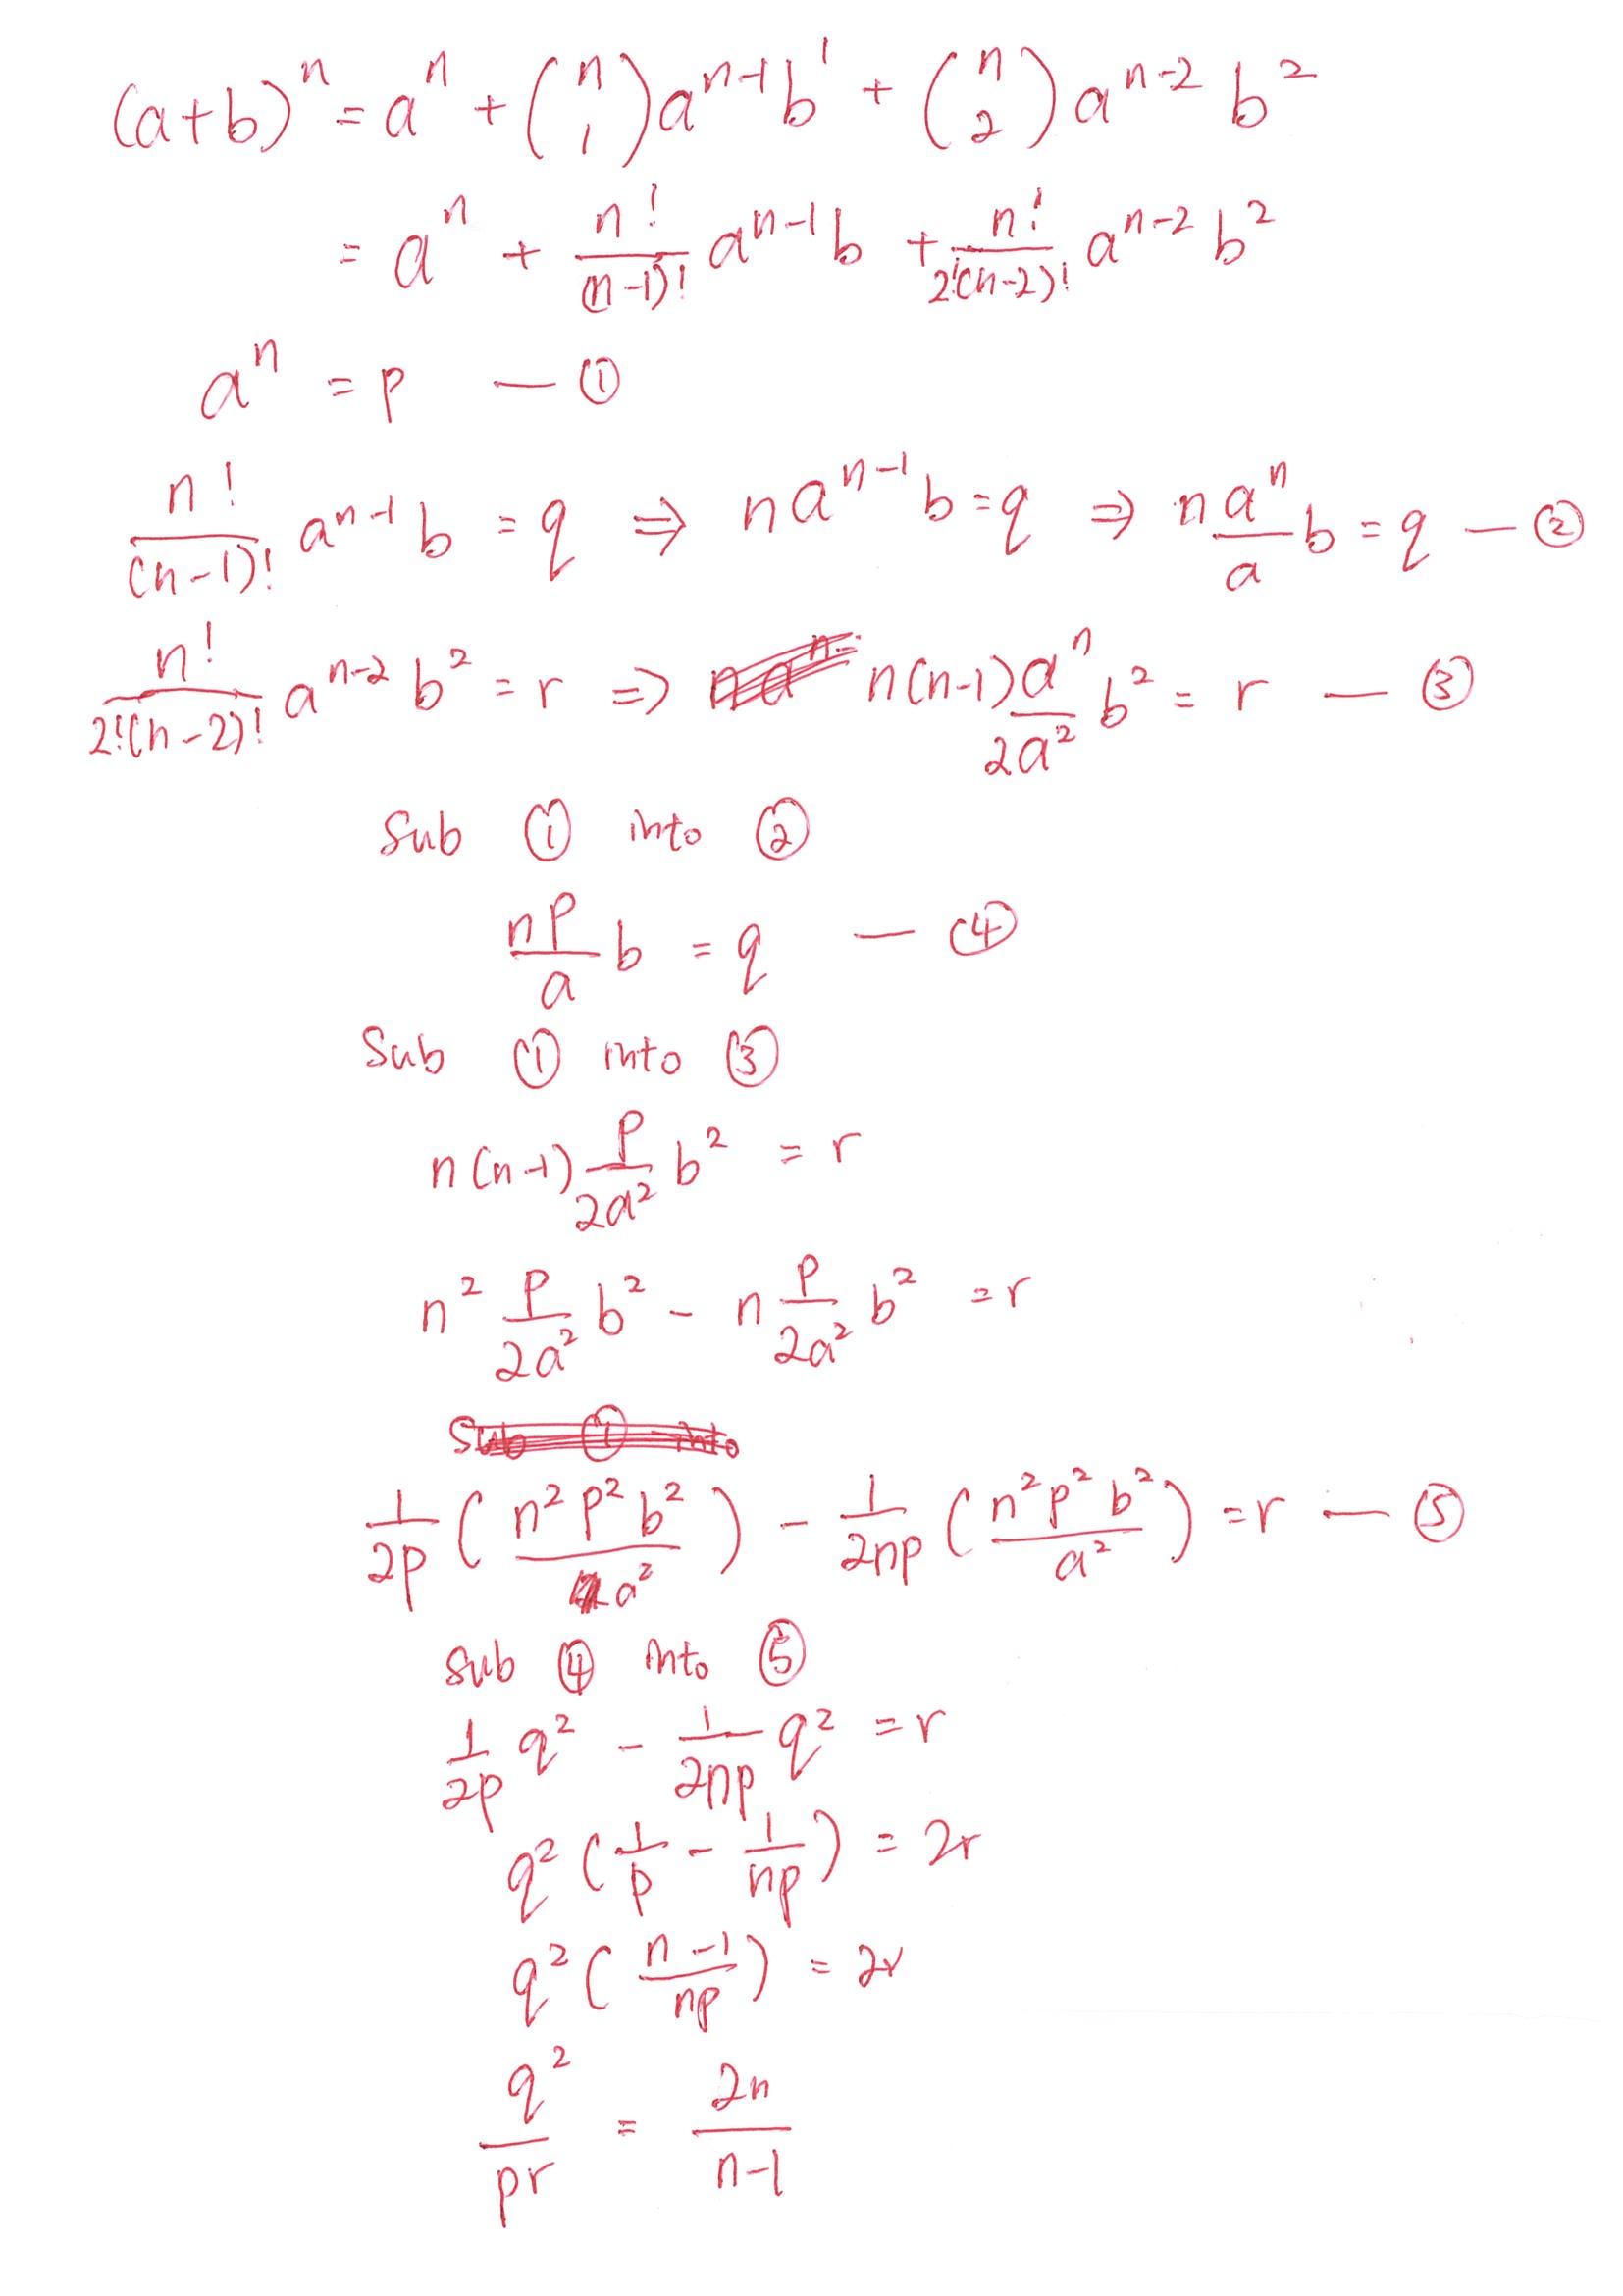 (a+b)ⁿ = aⁿ + (n 1) aⁿ⁻¹ b¹ + (n 2) aⁿ⁻² b²
= aⁿ + n!/(n-1)! aⁿ⁻¹ b + n!/2!(n-2)! aⁿ⁻² b²
aⁿ = p — ①
n!/(n-1)! aⁿ⁻¹ b = q ⇒ n aⁿ⁻¹ b = q ⇒ n aⁿ/a b = q — ②
n!/2!(n-2)! aⁿ⁻² b² = r ⇒ n(n-1) aⁿ/2a² b² = r — ③
Sub ① into ②
np/a b = q — ④
Sub ① into ③
n(n-1) p/2a² b² = r
n² p/2a² b² - n p/2a² b² = r
Sub ① into
1/2p (n²p²b²/a²) - 1/2np (n²p²b²/a²) = r — ⑤
Sub ④ into ⑤
1/2p q² - 1/2np q² = r
q² (1/p - 1/np) = 2r
q² (n-1/np) = 2r
q²/pr = 2n/n-1